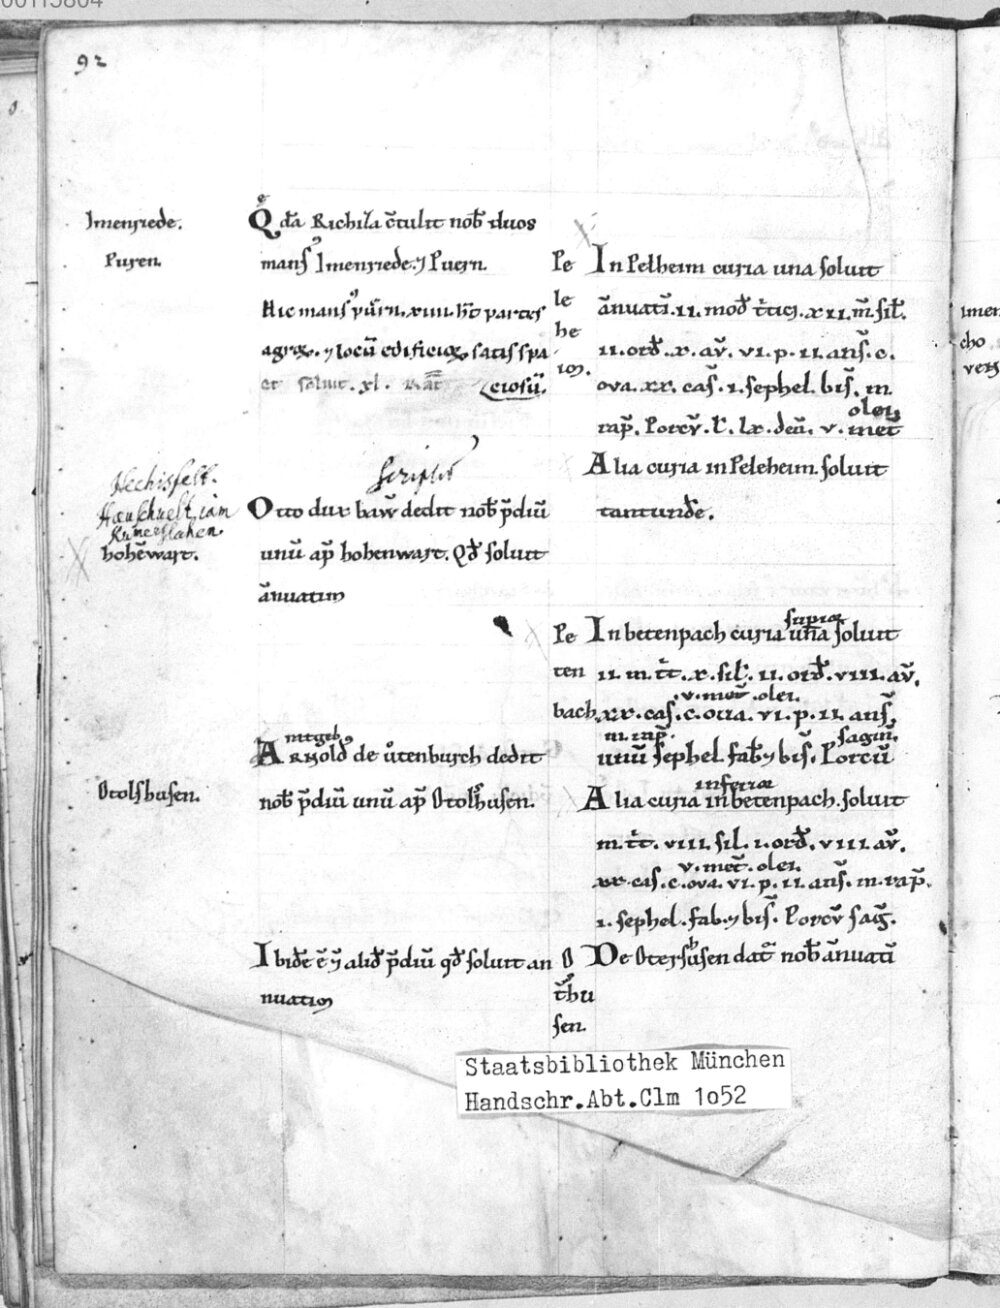 00113804
92
Imenriede.
Puren.
Qda Richila ctulit nob duos
mans Imenriede. ⁊ Puern.
Hic mans purn. xiiii. ht partes
agrox. ⁊ locu edificiox satis spa
et soluit. xl. rat
ciosu.
Hechisfelt.
Hauschuelt, iam
Kunerslahen.
hohewart.
Scriptus
Otto dux baw dedit nob pdiu
unu ap hohenwart. Qd soluit
annuatim
Otolshusen.
mtgeb
Arnold de utenburch dedit
nob pdiu unu ap Otolhusen.
Ibide e ⁊ aliud pdiu qd soluit an
nuatim
Pe
le
he
im.
In Pelheim curia una soluit
annuati. ii. mod ttici. xii. m. sil.
ii. ord. x. av. vi. p. ii. ans. c.
ova. xx. cas. i. sephel. bis. m.
rap. Porcu. l. lx. den. v. met
olei
Alia curia in Peleheim. soluit
tantunde.
Pe
ten
bach.
In betenpach curia una soluit
supra
ii. m. tt. x. sil. ii. ord. viii. av.
v. met. olei.
xx. cas. c. oua. vi. p. ii. ans.
m. rap.
sagin.
unu sephel fab ⁊ bis. Porcu
inferiore
Alia curia in betenpach. soluit
m. tt. viii. sil. i. ord. viii. av.
v. met. olei.
xx. cas. c. ova. vi. p. ii. ans. m. rap.
i. sephel. fab. ⁊ bis. Porcu sag.
O
thu
sen.
De Otershusen dat nob annuati
Imen
cho
vers
Staatsbibliothek München
Handschr.Abt.Clm 1o52